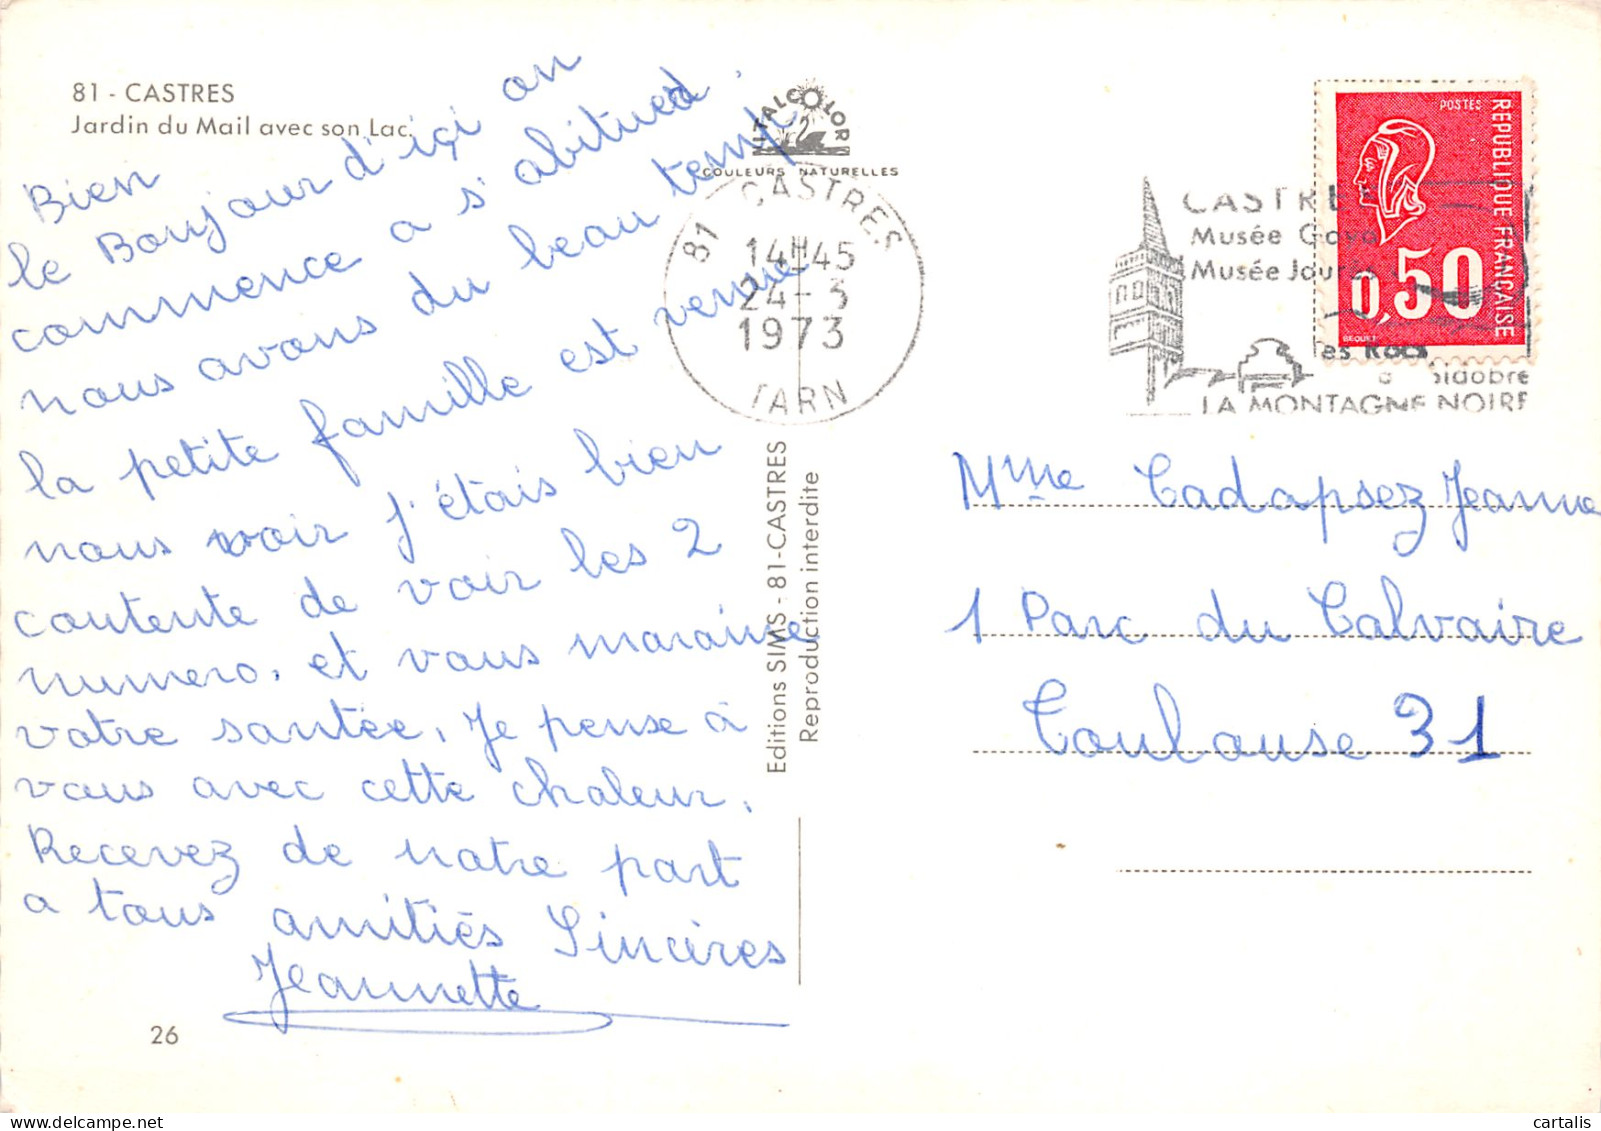 81 - CASTRES
Jardin du Mail avec son Lac.
Bien
le Bonjour d'içi on
commence a s'abituer
nous avons du beau temp
la petite famille est venue
nous voir j'étais bien
contente de voir les 2
numero, et vous maraine
votre santée, Je pense à
vous avec cette chaleur,
Recevez de notre part
a tous amitiés Sincères
Jeannette
26
VITALCOLOR
COULEURS NATURELLES
81 CASTRES
14H45
24-3
1973
TARN
Editions SIMS - 81 - CASTRES
Reproduction interdite
CASTRE
Musée Goya
Musée Jaurès
es Rocs
Sidobre
LA MONTAGNE NOIRE
POSTES
REPUBLIQUE FRANÇAISE
0,50
BEQUET
Mme Cadapsez Jeanne
1 Parc du Calvaire
Toulouse 31
cartalis
delcampe.net